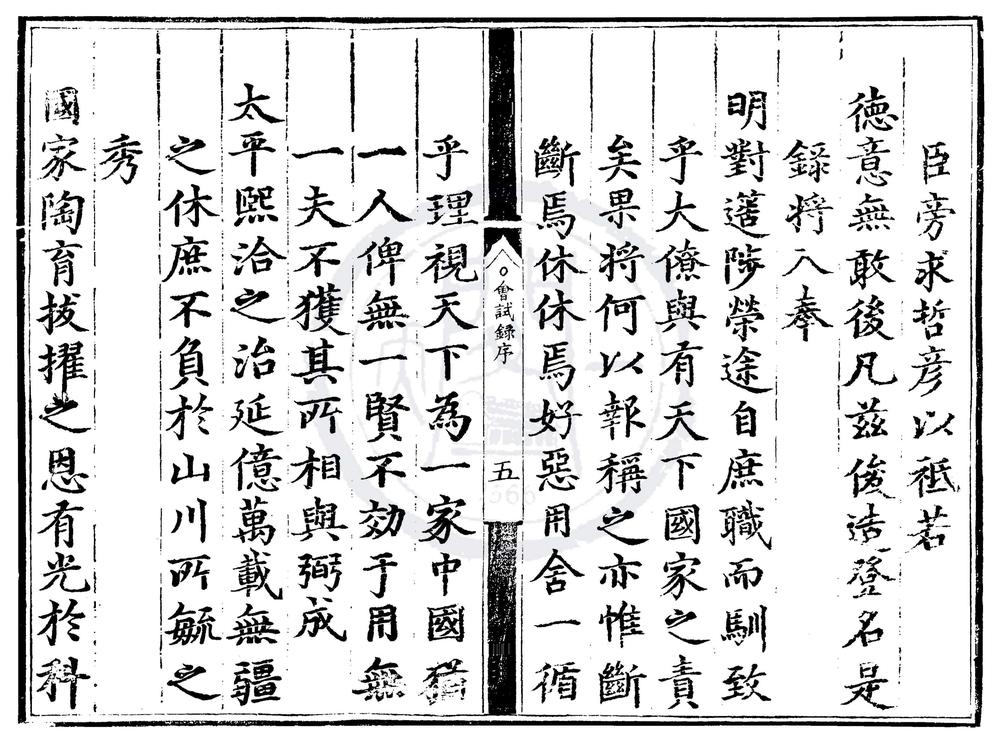 臣旁求哲彦以祗若
德意無敢後凡兹俊造登名是
錄將入奉
明對簉陟榮途自庶職而馴致
乎大僚與有天下國家之責
矣果將何以報稱之亦惟斷
斷焉休休焉好惡用舍一循
會試錄序
五
乎理視天下為一家中國猶
一人俾無一賢不効于用無
一夫不獲其所相與弼成
太平熙洽之治延億萬載無疆
之休庶不負於山川所毓之
秀
國家陶育拔擢之恩有光於科